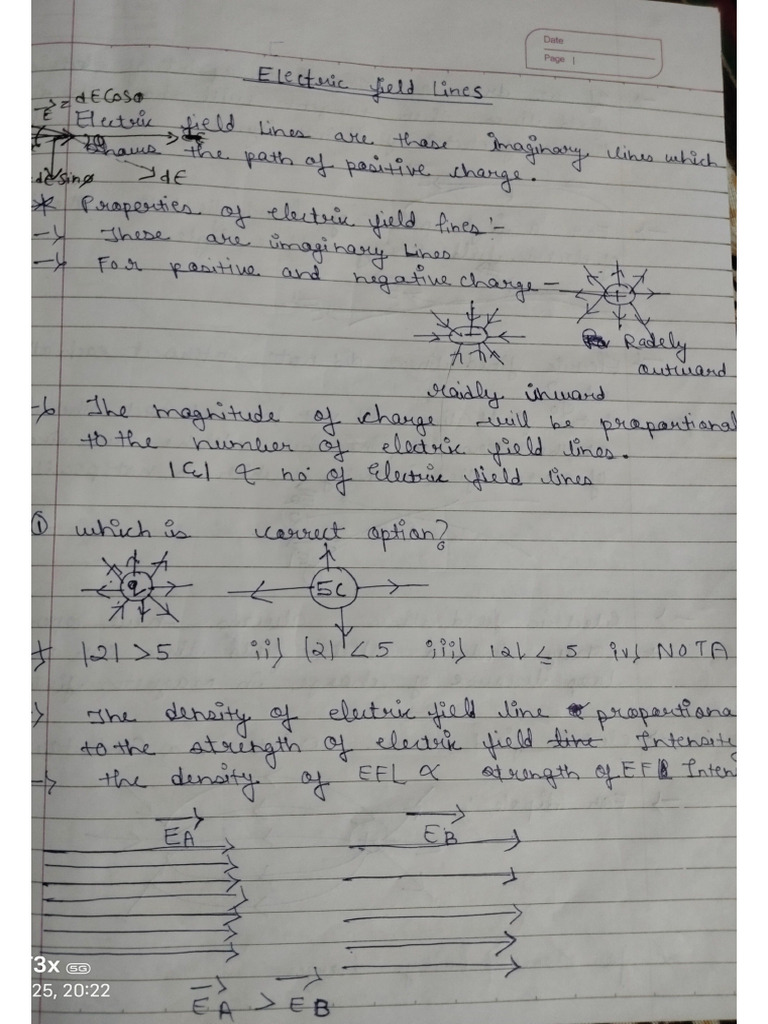 Date
Page 1
Electric field Lines
E = dE Cosθ
Electric field Lines are those imaginary lines which
shows the path of positive charge.
dE Sinθ dE
* Properties of electric field lines :-
→ These are imaginary Lines
→ For positive and negative charge -
+
-
Radely
outward
raidly inward
→ The magnitude of charge will be proportional
to the number of electric field lines.
|q| ∝ no. of Electric field lines
① which is correct option?
q 5C
|q| > 5 ii) |q| < 5 iii) |q| ≤ 5 iv) NOTA
→ The density of electric field line proportiona
to the strength of electric field line Intensity
→ the density of EFL ∝ strength of EF Inten
EA EB
T3x 5G
25, 20:22
EA > EB